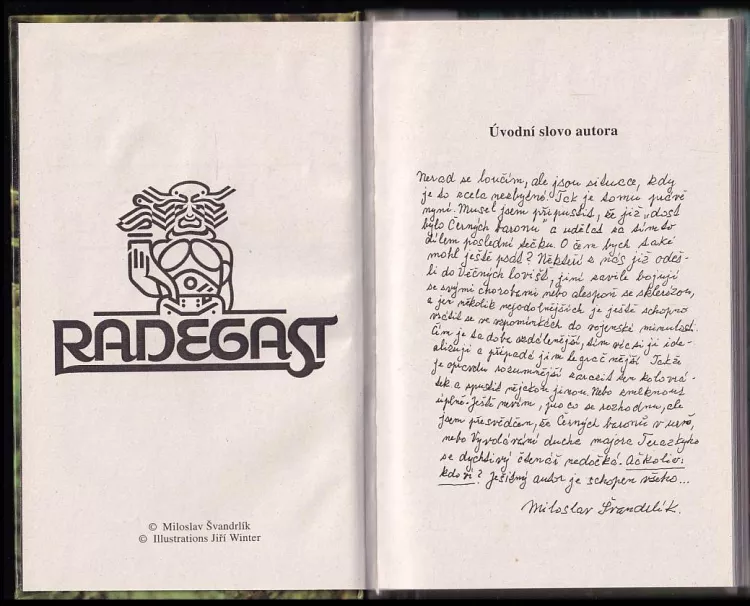 RADEGAST
© Miloslav Švandrlík
© Illustrations Jiří Winter
Úvodní slovo autora
Nerad se loučím, ale jsou situace, kdy
je to zcela nezbytné. Tak je tomu právě
nyní. Musel jsem připustit, že již „dost
bylo Černých baronů a udělat za tímto
dílem poslední tečku. O čem bych také
mohl ještě psát? Někteří z nás již odeš-
li do věčných lovišť, jiní zavile bojují
se svými chorobami nebo alespoň se sklerózou,
a jen několik nejodolnějších je ještě schopno
vrátit se ve vzpomínkách do vojenské minulosti.
Čím je ta doba vzdálenější, tím více si ji ide-
alizují a připadá jim legračnější. Takže
je opravdu rozumnější zarazit ten kolovrá-
tek a spustit nějakou jinou. Nebo zmlknout
úplně. Ještě nevím, pro co se rozhodnu, ale
jsem přesvědčen, že Černých baronů v
nebo Vyvolávání ducha majora Terazkyho
se dychtivý čtenář nedočká. Ačkoliv:
kdo ví? Ješitný autor je schopen všeho...
Miloslav Švandrlík.